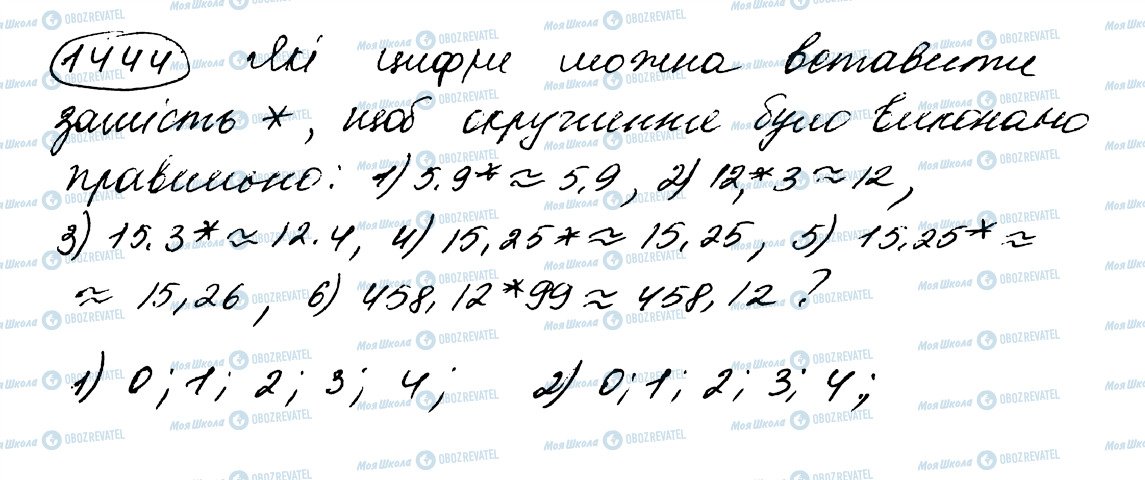 1444 Які цифри можна вставити
замість *, щоб округлення було виконано
правильно: 1) 5.9* ≈ 5.9, 2) 12,*3 ≈ 12,
3) 15.3* ≈ 12.4, 4) 15,25* ≈ 15,25, 5) 15.25* ≈
≈ 15,26, 6) 458,12*99 ≈ 458,12?
1) 0; 1; 2; 3; 4; 2) 0; 1; 2; 3; 4;